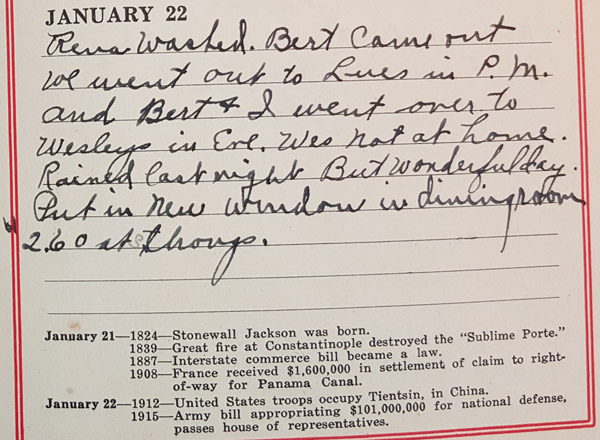 JANUARY 22
Rena Washed. Bert Came out
we went out to Lues in P. M.
and Bert & I went over to
Wesleys in Eve. Wes not at home.
Rained last night But wonderful day.
Put in New window in diningroom
2.60 at
January 21—1824—Stonewall Jackson was born.
1839—Great fire at Constantinople destroyed the "Sublime Porte."
1887—Interstate commerce bill became a law.
1908—France received $1,600,000 in settlement of claim to right-
of-way for Panama Canal.
January 22—1912—United States troops occupy Tientsin, in China.
1915—Army bill appropriating $101,000,000 for national defense,
passes house of representatives.